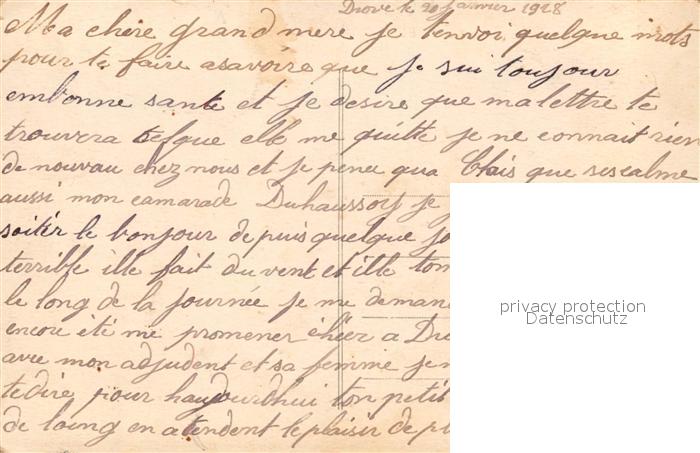 Drove le 20 Janvier 1928
Ma chere grand mere je tenvoi quelque mots
pour te faire asavoire que je sui toujour
enbonne sante et je desire que ma lettre te
trouvera telque elle me quitte je ne connait rien
de nouvau chez nous et je pence qua Blais que sescalme
aussi mon camarade Duhaussoy je
soitér le bonjour depuis quelque jo
terrible ille fait du vent et ille tom
le long de la journée je me deman
encore été me promener ihier a Dre
avec mon adjudent et sa femme je n
tedire pour haujourdhui ton petit
de loing en atendent le plaisir de pl
privacy protection
Datenschutz